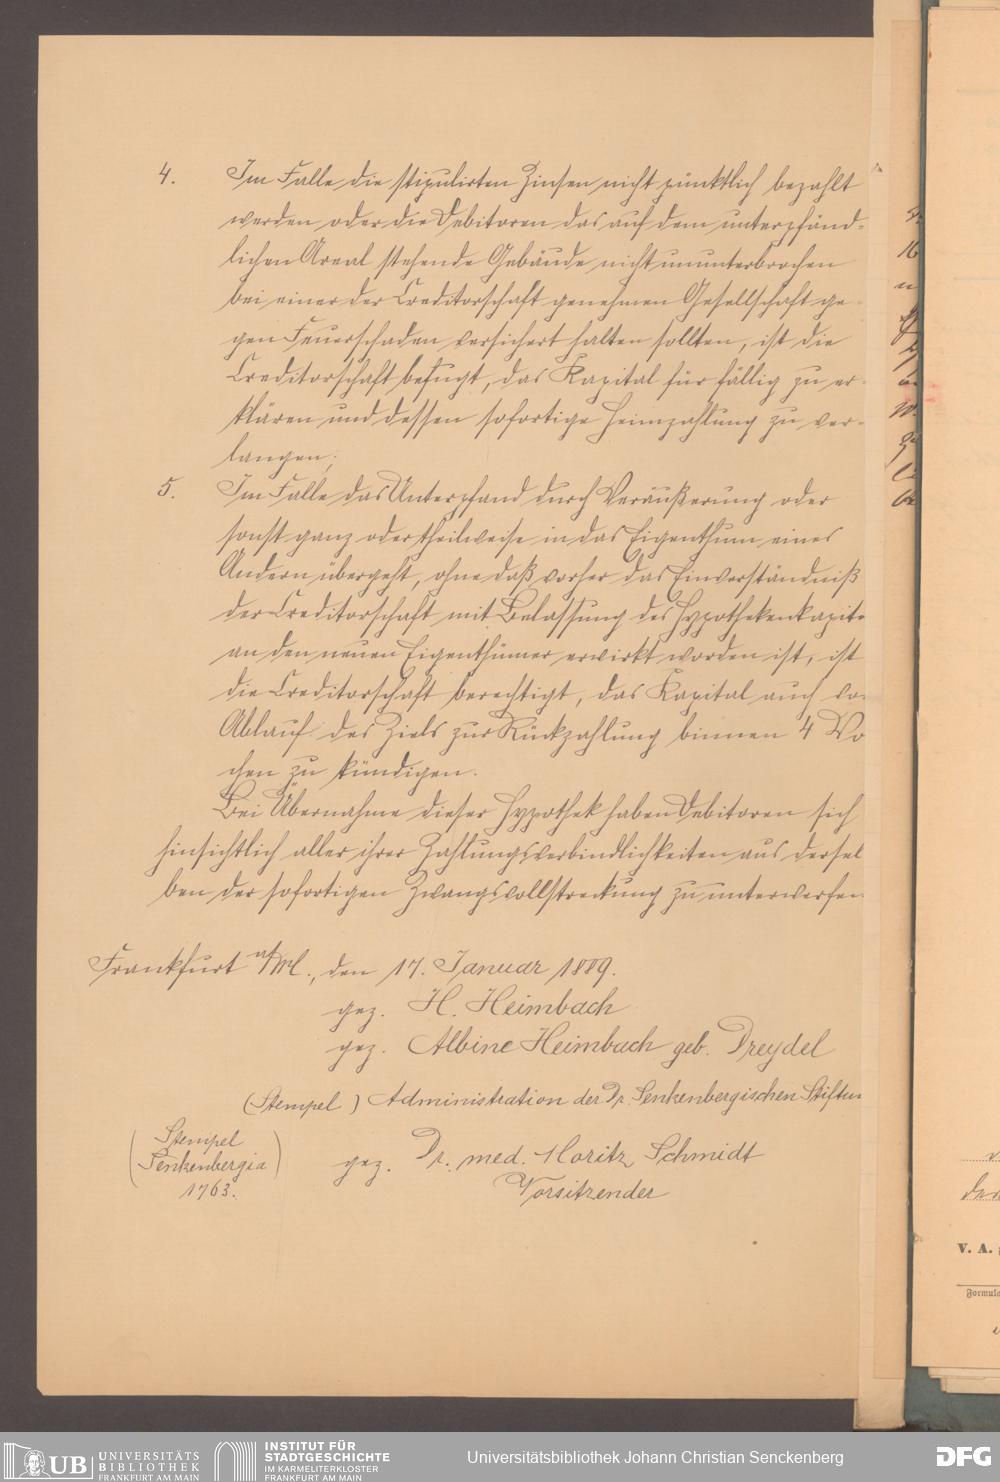 4. Im Falle die stipulirten Zinsen nicht pünktlich bezahlt
werden oder die Debitoren das auf dem unterpfänd-
lichen Areal stehende Gebäude nicht ununterbrochen
bei einer der Creditorschaft genehmen Gesellschaft ge-
gen Feuerschaden versichert halten sollten, ist die
Creditorschaft befugt, das Kapital für fällig zu er-
klären und dessen sofortige Heimzahlung zu ver-
langen;
5. Im Falle das Unterpfand durch Veräußerung oder
sonst ganz oder theilweise in das Eigenthum eines
Andern übergeht, ohne daß vorher das Einverständniß
der Creditorschaft mit Belassung des Hypothekenkapit
an den neuen Eigenthümer erwirkt worden ist, ist
die Creditorschaft berechtigt, das Kapital auch vo
Ablauf des Ziels zur Rückzahlung binnen 4 Wo
chen zu kündigen.
Bei Übernahme dieser Hypothek haben Debitoren sich
hinsichtlich aller ihrer Zahlungsverbindlichkeiten aus dersel
ben der sofortigen Zwangsvollstreckung zu unterwerfen
Frankfurt a/M., den 17. Januar 1889.
gez. H. Heimbach
gez. Albine Heimbach geb. Dreydel
(Stempel) Administration der Dr. Senkenbergischen Stiftun
(Stempel
Senkenbergia)
1763.
gez. Dr. med. Moritz Schmidt
Vorsitzender
V. A.
Formula
UB UNIVERSITÄTS
BIBLIOTHEK
FRANKFURT AM MAIN
INSTITUT FÜR
STADTGESCHICHTE
IM KARMELITERKLOSTER
FRANKFURT AM MAIN
Universitätsbibliothek Johann Christian Senckenberg
DFG